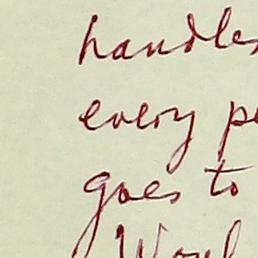 handles
every pe
goes to
Woul